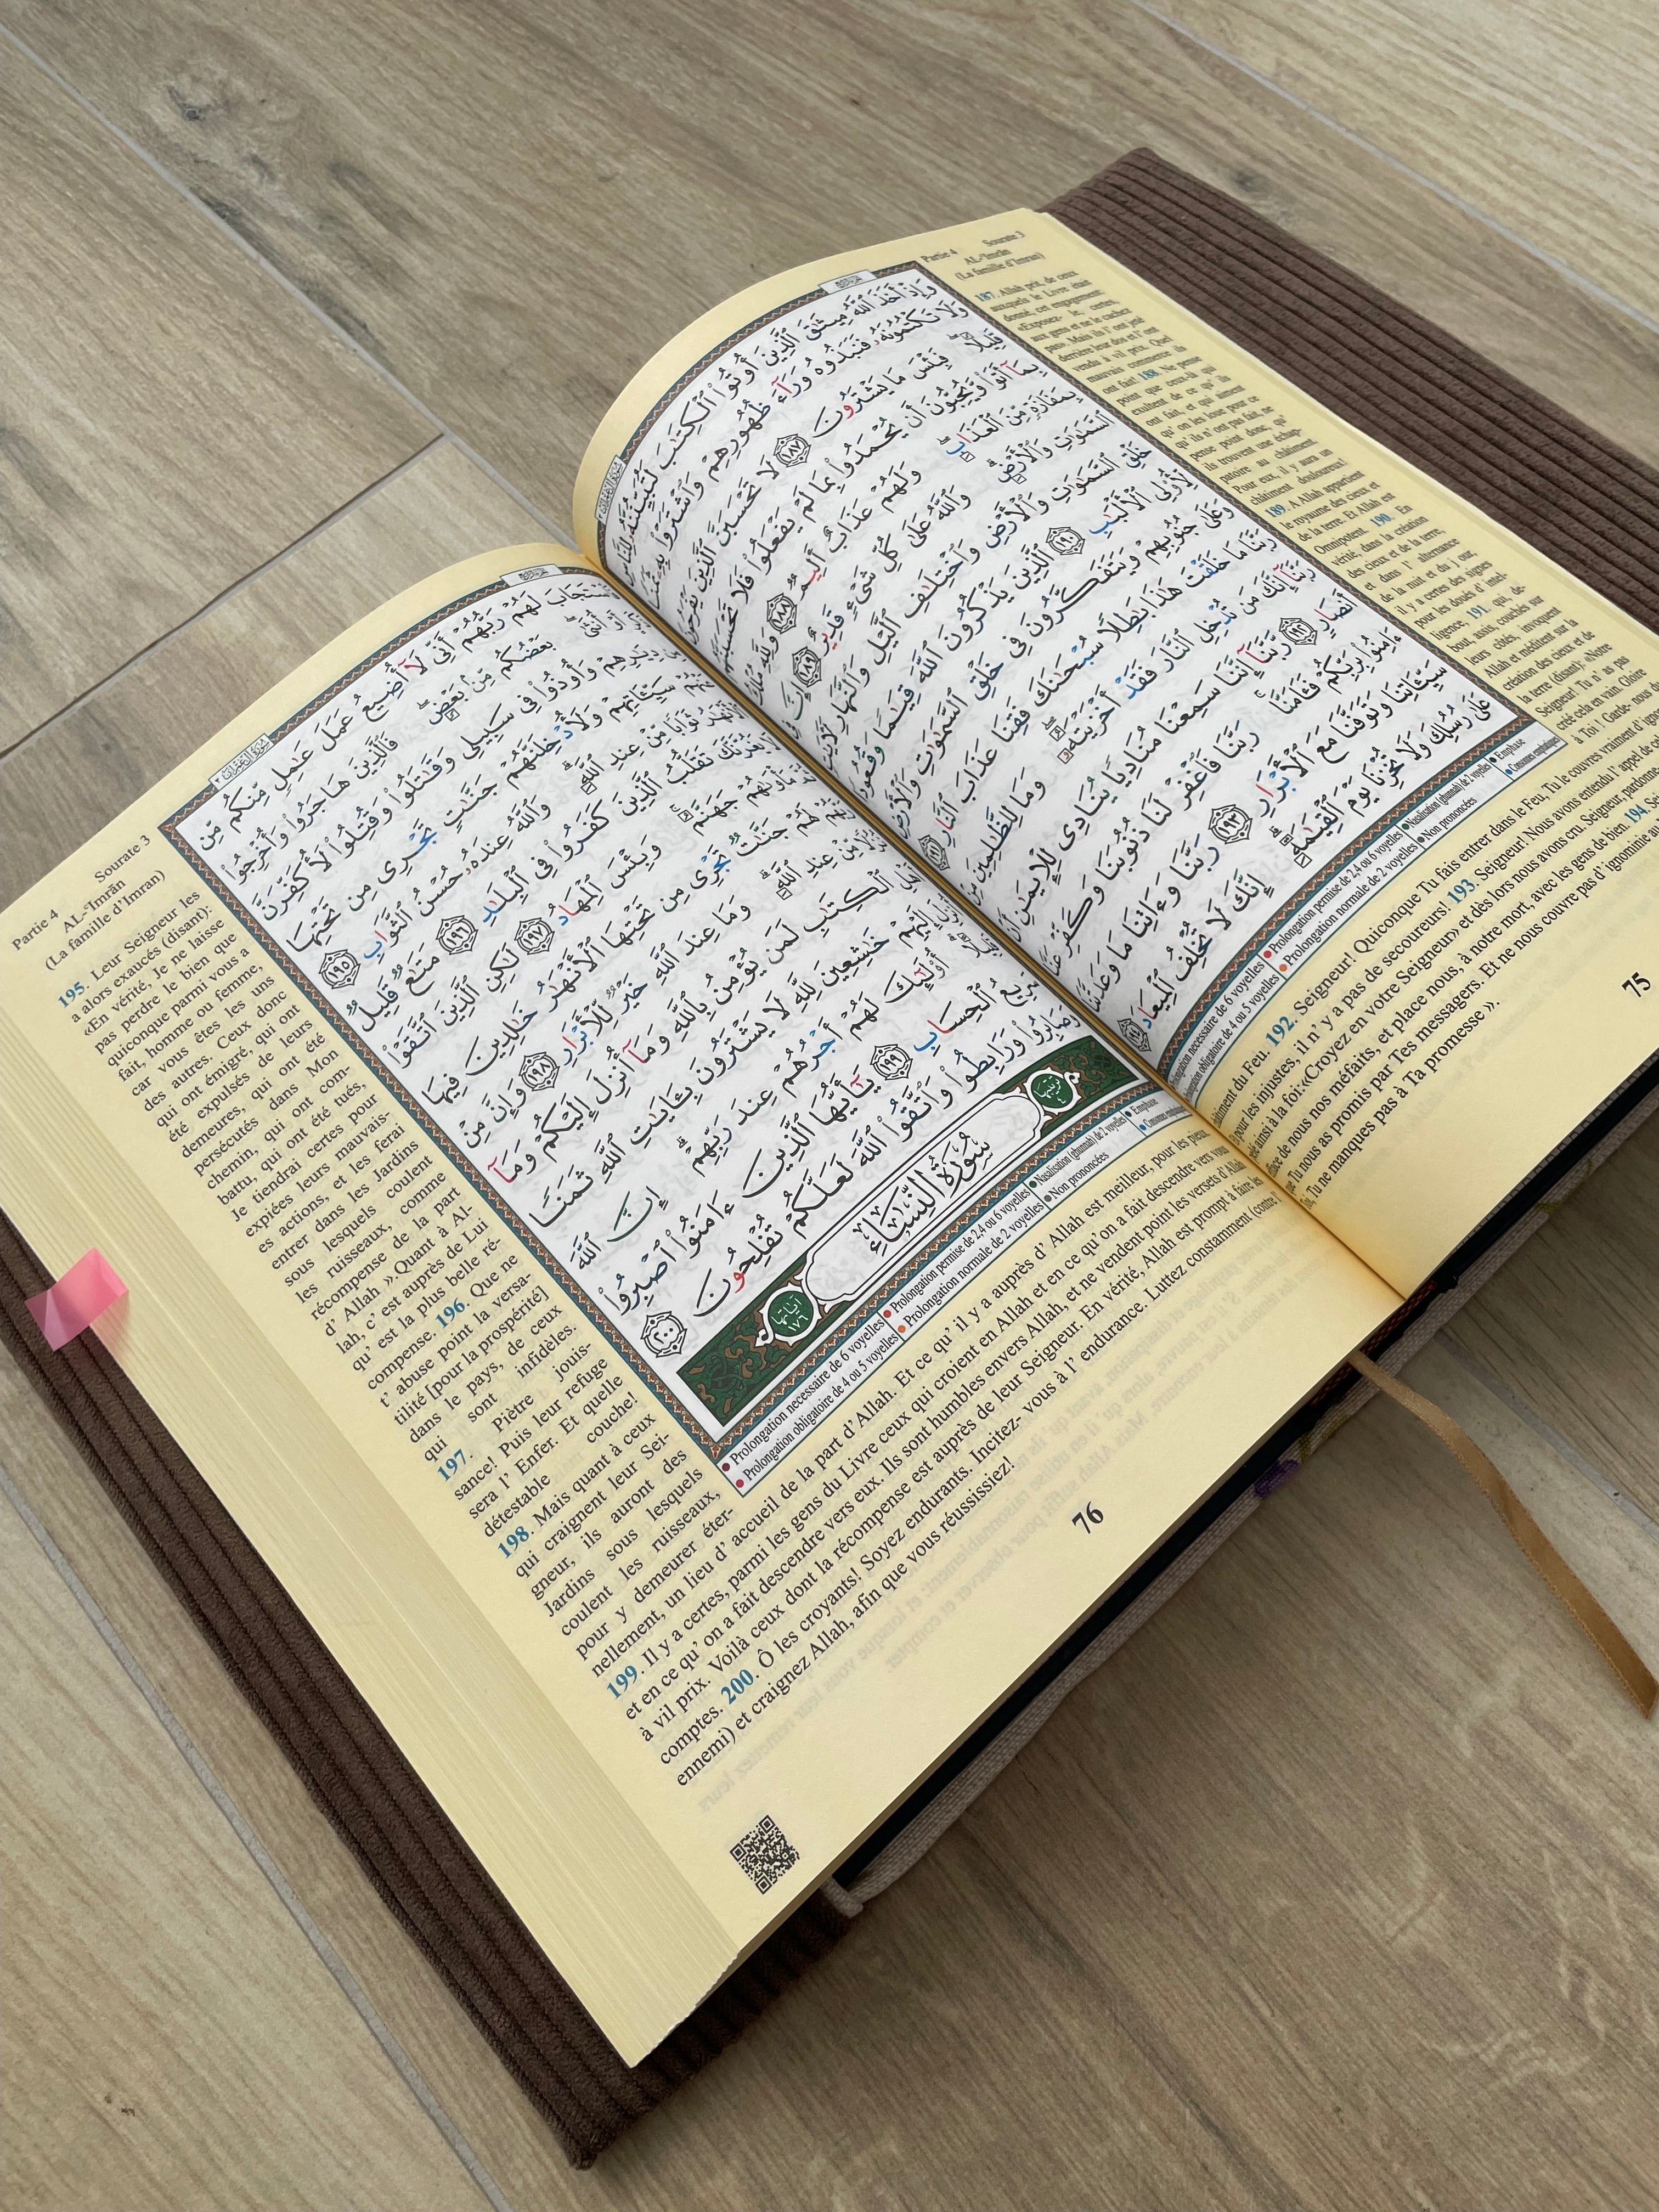 Partie 4 Sourate 3
AL-'Imrān
(La famille d'Imran)
وَإِذْ أَخَذَ ٱللَّهُ مِيثَٰقَ ٱلَّذِينَ أُوتُوا۟ ٱلْكِتَٰبَ لَتُبَيِّنُنَّهُۥ لِلنَّاسِ
وَلَا تَكْتُمُونَهُۥ فَنَبَذُوهُ وَرَآءَ ظُهُورِهِمْ وَٱشْتَرَوْا۟ بِهِۦ ثَمَنًا
قَلِيلًا ۖ فَبِئْسَ مَا يَشْتَرُونَ ١٨٧ لَا تَحْسَبَنَّ ٱلَّذِينَ يَفْرَحُونَ
بِمَآ أَتَوا۟ وَّيُحِبُّونَ أَن يُحْمَدُوا۟ بِمَا لَمْ يَفْعَلُوا۟ فَلَا تَحْسَبَنَّهُم
بِمَفَازَةٍ مِّنَ ٱلْعَذَابِ ۖ وَلَهُمْ عَذَابٌ أَلِيمٌ ١٨٨ وَلِلَّهِ مُلْكُ
ٱلسَّمَٰوَٰتِ وَٱلْأَرْضِ ۗ وَٱللَّهُ عَلَىٰ كُلِّ شَىْءٍ قَدِيرٌ ١٨٩ إِنَّ فِى
خَلْقِ ٱلسَّمَٰوَٰتِ وَٱلْأَرْضِ وَٱخْتِلَٰفِ ٱلَّيْلِ وَٱلنَّهَارِ لَـَٔايَٰتٍ
لِّأُو۟لِى ٱلْأَلْبَٰبِ ١٩٠ ٱلَّذِينَ يَذْكُرُونَ ٱللَّهَ قِيَٰمًا وَقُعُودًا
وَعَلَىٰ جُنُوبِهِمْ وَيَتَفَكَّرُونَ فِى خَلْقِ ٱلسَّمَٰوَٰتِ وَٱلْأَرْضِ
رَبَّنَا مَا خَلَقْتَ هَٰذَا بَٰطِلًا سُبْحَٰنَكَ فَقِنَا عَذَابَ ٱلنَّارِ ١٩١
رَبَّنَآ إِنَّكَ مَن تُدْخِلِ ٱلنَّارَ فَقَدْ أَخْزَيْتَهُۥ ۖ وَمَا لِلظَّٰلِمِينَ مِنْ
أَنصَارٍ ١٩٢ رَّبَّنَآ إِنَّنَا سَمِعْنَا مُنَادِيًا يُنَادِى لِلْإِيمَٰنِ أَنْ
ءَامِنُوا۟ بِرَبِّكُمْ فَـَٔامَنَّا ۚ رَبَّنَا فَٱغْفِرْ لَنَا ذُنُوبَنَا وَكَفِّرْ عَنَّا
سَيِّـَٔاتِنَا وَتَوَفَّنَا مَعَ ٱلْأَبْرَارِ ١٩٣ رَبَّنَا وَءَاتِنَا مَا وَعَدتَّنَا
عَلَىٰ رُسُلِكَ وَلَا تُخْزِنَا يَوْمَ ٱلْقِيَٰمَةِ ۗ إِنَّكَ لَا تُخْلِفُ ٱلْمِيعَادَ ١٩٤
187. Allah prit, de ceux
auxquels le Livre était
donné, cet engagement:
«Exposez- le, certes,
aux gens et ne le cachez
pas». Mais ils l' ont jeté
derrière leur dos et l' ont
vendu à vil prix. Quel
mauvais commerce ils
ont fait! 188. Ne pense
point que ceux-là qui
exultent de ce qu' ils
ont fait, et qui aiment
qu' on les loue pour ce
qu' ils n' ont pas fait, ne
pense point donc, qu'
ils trouvent une échap-
patoire au châtiment.
Pour eux, il y aura un
châtiment douloureux!
189. A Allah appartient
le royaume des cieux et
de la terre. Et Allah est
Omnipotent. 190. En
vérité, dans la création
des cieux et de la terre,
et dans l' alternance
de la nuit et du jour,
il y a certes des signes
pour les doués d' intel-
ligence, 191. qui, de-
bout, assis, couchés sur
leurs côtés, invoquent
Allah et méditent sur la
création des cieux et de
la terre (disant): «Notre
Seigneur! Tu n' as pas
créé cela en vain. Gloire
à Toi! Garde- nous du
châtiment du Feu. 192. Seigneur! Quiconque Tu fais entrer dans le Feu, Tu le couvres vraiment d' ignominie
pour les injustes, il n' y a pas de secoureurs! 193. Seigneur! Nous avons entendu l' appel de celui
ainsi à la foi:«Croyez en votre Seigneur» et dès lors nous avons cru. Seigneur, pardonne-
de nous nos méfaits, et place nous, à notre mort, avec les gens de bien. 194.
Tu nous as promis par Tes messagers. Et ne nous couvre pas d' ignominie au
Tu ne manques pas à Ta promesse ».
Prolongation necessaire de 6 voyelles Prolongation permise de 2,4 ou 6 voyelles Nasalisation (ghunnah) de 2 voyelles Emphase
Prolongation obligatoire de 4 ou 5 voyelles Prolongation normale de 2 voyelles Non prononcées Consonne emphatique
75
Partie 4 Sourate 3
AL-'Imrān
(La famille d'Imran)
فَٱسْتَجَابَ لَهُمْ رَبُّهُمْ أَنِّى لَآ أُضِيعُ عَمَلَ عَٰمِلٍ مِّنكُم مِّن
أَوْ أُنثَىٰ ۖ بَعْضُكُم مِّنۢ بَعْضٍ ۖ فَٱلَّذِينَ هَاجَرُوا۟ وَأُخْرِجُوا۟
مِن دِيَٰرِهِمْ وَأُوذُوا۟ فِى سَبِيلِى وَقَٰتَلُوا۟ وَقُتِلُوا۟ لَأُكَفِّرَنَّ
عَنْهُمْ سَيِّـَٔاتِهِمْ وَلَأُدْخِلَنَّهُمْ جَنَّٰتٍ تَجْرِى مِن تَحْتِهَا
ٱلْأَنْهَٰرُ ثَوَابًا مِّنْ عِندِ ٱللَّهِ ۗ وَٱللَّهُ عِندَهُۥ حُسْنُ ٱلثَّوَابِ ١٩٥
لَا يَغُرَّنَّكَ تَقَلُّبُ ٱلَّذِينَ كَفَرُوا۟ فِى ٱلْبِلَٰدِ ١٩٦ مَتَٰعٌ قَلِيلٌ
ثُمَّ مَأْوَىٰهُمْ جَهَنَّمُ ۚ وَبِئْسَ ٱلْمِهَادُ ١٩٧ لَٰكِنِ ٱلَّذِينَ ٱتَّقَوْا۟
رَبَّهُمْ لَهُمْ جَنَّٰتٌ تَجْرِى مِن تَحْتِهَا ٱلْأَنْهَٰرُ خَٰلِدِينَ فِيهَا
نُزُلًا مِّنْ عِندِ ٱللَّهِ ۗ وَمَا عِندَ ٱللَّهِ خَيْرٌ لِّلْأَبْرَارِ ١٩٨ وَإِنَّ مِنْ
أَهْلِ ٱلْكِتَٰبِ لَمَن يُؤْمِنُ بِٱللَّهِ وَمَآ أُنزِلَ إِلَيْكُمْ وَمَآ
أُنزِلَ إِلَيْهِمْ خَٰشِعِينَ لِلَّهِ لَا يَشْتَرُونَ بِـَٔايَٰتِ ٱللَّهِ ثَمَنًا
قَلِيلًا ۗ أُو۟لَٰٓئِكَ لَهُمْ أَجْرُهُمْ عِندَ رَبِّهِمْ ۗ إِنَّ ٱللَّهَ
سَرِيعُ ٱلْحِسَابِ ١٩٩ يَٰٓأَيُّهَا ٱلَّذِينَ ءَامَنُوا۟ ٱصْبِرُوا۟
وَصَابِرُوا۟ وَرَابِطُوا۟ وَٱتَّقُوا۟ ٱللَّهَ لَعَلَّكُمْ تُفْلِحُونَ ٢٠٠
سُورَةُ النِّسَاءِ
آياتها ١٧٦
195. Leur Seigneur les
a alors exaucés (disant):
«En vérité, Je ne laisse
pas perdre le bien que
quiconque parmi vous a
fait, homme ou femme,
car vous êtes les uns
des autres. Ceux donc
qui ont émigré, qui ont
été expulsés de leurs
demeures, qui ont été
persécutés dans Mon
chemin, qui ont com-
battu, qui ont été tués,
Je tiendrai certes pour
expiées leurs mauvais-
es actions, et les ferai
entrer dans les Jardins
sous lesquels coulent
les ruisseaux, comme
récompense de la part
d' Allah ».Quant à Al-
lah, c' est auprès de Lui
qu' est la plus belle ré-
compense. 196. Que ne
t' abuse point la versa-
tilité [pour la prospérité]
dans le pays, de ceux
qui sont infidèles.
197. Piètre jouis-
sance! Puis leur refuge
sera l' Enfer. Et quelle
détestable couche!
198. Mais quant à ceux
qui craignent leur Sei-
gneur, ils auront des
Jardins sous lesquels
coulent les ruisseaux,
pour y demeurer éter-
nellement, un lieu d' accueil de la part d'Allah. Et ce qu' il y a auprès d' Allah est meilleur, pour les pieux.
199. Il y a certes, parmi les gens du Livre ceux qui croient en Allah et en ce qu' on a fait descendre vers vous
et en ce qu' on a fait descendre vers eux. Ils sont humbles envers Allah, et ne vendent point les versets d'Allah
à vil prix. Voilà ceux dont la récompense est auprès de leur Seigneur. En vérité, Allah est prompt à faire les
comptes. 200. Ô les croyants! Soyez endurants. Incitez- vous à l' endurance. Luttez constamment (contre l'
ennemi) et craignez Allah, afin que vous réussissiez!
Prolongation necessaire de 6 voyelles Prolongation permise de 2,4 ou 6 voyelles Nasalisation (ghunnah) de 2 voyelles Emphase
Prolongation obligatoire de 4 ou 5 voyelles Prolongation normale de 2 voyelles Non prononcées Consonne emphatique
76